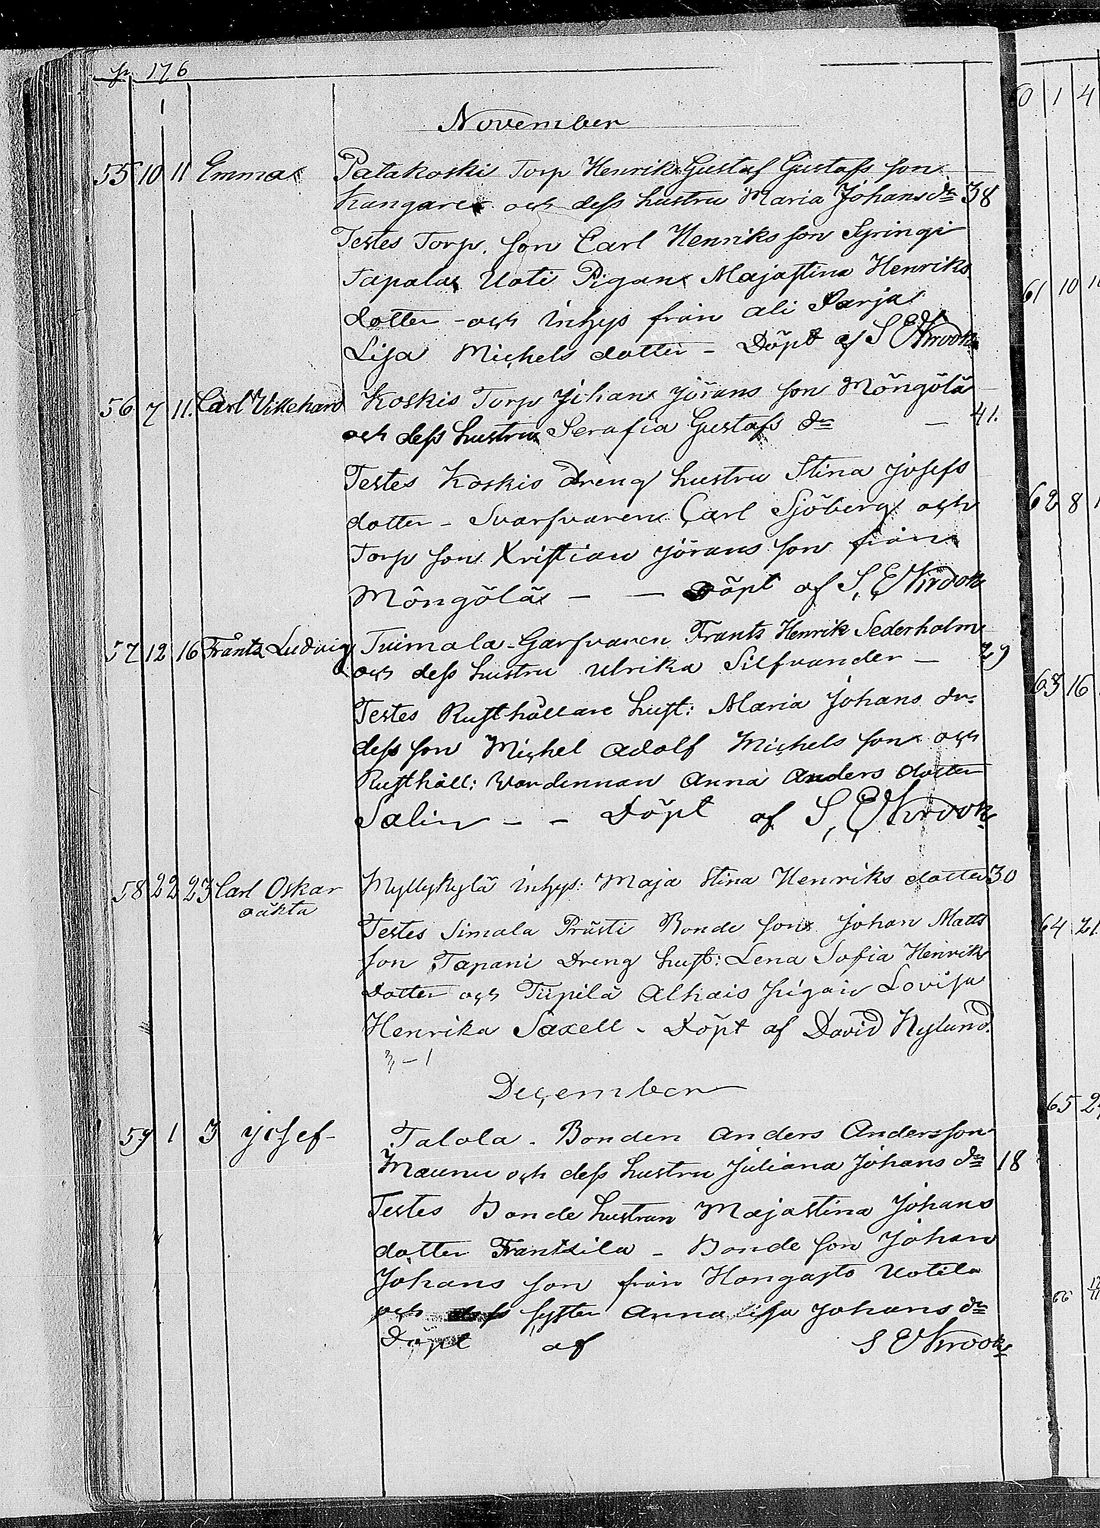 p. 176
November
55 10 11 Emma Palakoski Torp Henrik Gustaf Gustafs son
Kangare och dess hustru Maria Johans dr 38
Testes Torp. son Carl Henriks son Syringi
Tapala Uoti Pigan Majastina Henriks
dotter - och Inhys från Ali
Lisa Michels dotter - Döpt af S E Krook
56 7 11. Carl Vikehard Koskis Torp Johan Jörans son Möngölä
och dess hustru Serafia Gustafs dr — 41.
Testes Koskis Dreng hustru Stina Josefs
dotter - Svarfvaren Carl Sjöberg och
Torp son Kristian Jörans son från
Möngölä — — Döpt af S. E Krook
57 12 16 Frants Ludvig Tuimala Garfvaren Frants Henrik Sederholm
och dess hustru Ulrika Silfvander — 29
Testes Rusthållare hust: Maria Johans dr
dess son Michel Adolf Michels son och
Rusthåll: Anna Anders dotter
Salin - - Döpt af S, E Krook
58 22 23 Carl Oskar Myllykylä inhys: Maja Stina Henriks dotter 30
oäkta
Testes Simala Prusti Bonde son Johan Matts
son Tapani Dreng hust: Lena Sofia Henriks
Dotter och Tupilä Lovisa
Henrika Saxell - Döpt af David Nylund.
December
59 1 3 Josef - Talola. Bonden Anders Andersson
Maunu och dess hustru Juliana Johans dr 18
Testes Bonde hustrun Majastina Johans
dotter Frantsila - Bonde son Johan
Johans son från Hongasto Uotila
och dess syster Anna Lisa Johans dr
Döpt af S E Krook
60 1 4
61 10
62 8
63 16
64 21
65 2
66